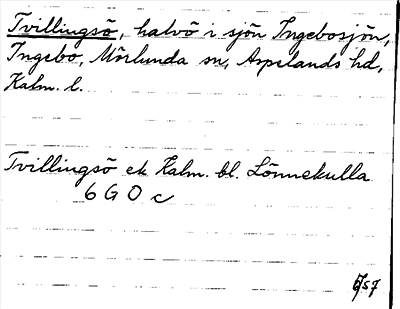 Tvillingsö, halvö i sjön Ingebosjön,
Ingebo, Mörlunda sn, Aspelands hd,
Kalm. l.
Tvillingsö ek Kalm. bl. Lönnekulla
6 G O c